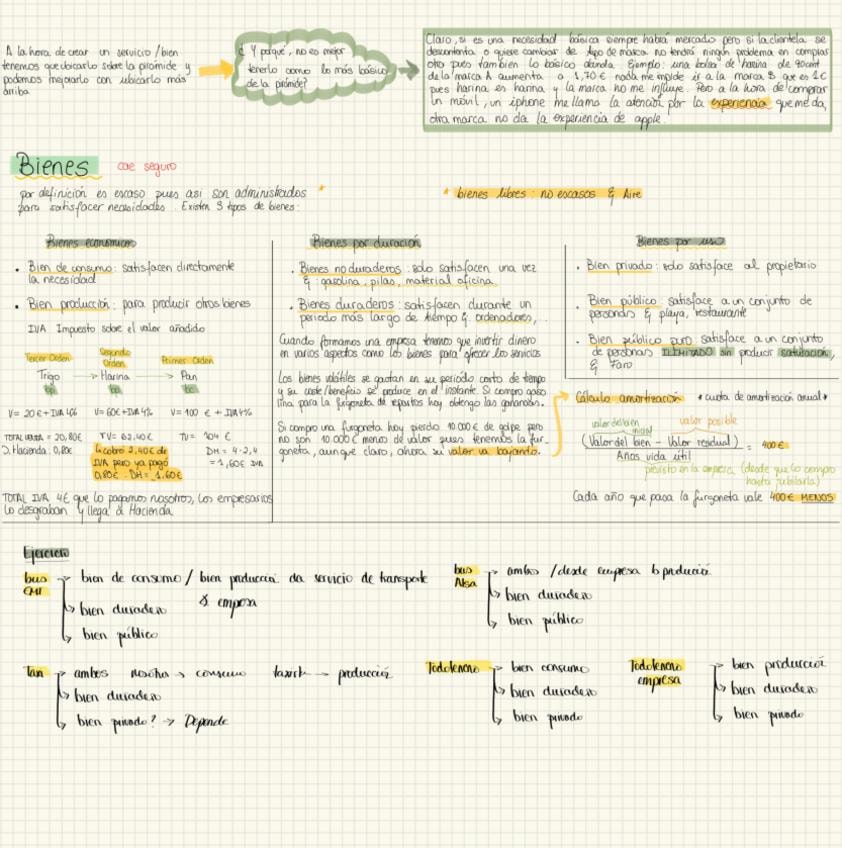 A la hora de crear un servicio/bien
tenemos que ubicarlo sobre la pirámide y
podemos mejorarlo con ubicarlo más
arriba.
¿Y porqué, no es mejor
tenerlo como lo más básico
de la pirámide?
Claro, si es una necesidad básica siempre habrá mercado pero si la clientela se
descontenta o quiere cambiar de tipo de marca no tendrá ningún problema en comprar
otro pues también lo básico abunda. Ejemplo: una bolsa de harina de
de la marca A aumenta a 1,70€ nada me impide ir a la marca B que es 1€
pues harina es harina y la marca no me influye. Pero a la hora de comprar
un móvil, un iphone me llama la atención por la experiencia que me da,
otra marca no da la experiencia de apple.
Bienes cae seguro
por definición es escaso pues asi son administrados *
para satisfacer necesidades. Existen 3 tipos de bienes:
* bienes libres: no escasos Ej Aire
Bienes económicos
• Bien de consumo: satisfacen directamente
la necesidad
• Bien producción: para producir otros bienes
IVA Impuesto sobre el valor añadido
Tercer Orden Segundo Orden Primer Orden
Trigo → Harina → Pan
bp bp bc
V= 20€+IVA 4% V= 60€+IVA 4% V= 100 € + IVA 4%
TOTAL VENTA = 20,80€ TV= 62,40€ TV= 104 €
D. Hacienda: 0,80€
la cobro 2,40€ de
IVA pero ya pagó
0,80€. DH= 1,60€
DH= 4-2,4
= 1,60€ IVA
TOTAL IVA 4€ que lo pagamos nosotros, los empresarios
lo desgraban y llega a Hacienda.
Bienes por duración
• Bienes no duraderos: solo satisfacen una vez
Ej: gasolina, pilas, material oficina
• Bienes duraderos: satisfacen durante un
periodo más largo de tiempo Ej ordenadores,..
Cuando formamos una empresa tenemos que invertir dinero
en varios aspectos como los bienes para ofrecer los servicios
Los bienes volátiles se gastan en su periódo corto de tiempo
y su coste/beneficio se produce en el instante. Si compro gaso
lina para la furgoneta de repartos hoy obtengo las ganancias.
Si compro una furgoneta hoy pierdo 10.000€ de golpe pero
no son 10.000€ menos de valor pues tenemos la fur-
goneta, aunque claro, ahora su valor va bajando.
Bienes por uso
• Bien privado: solo satisface al propietario
• Bien público: satisface a un conjunto de
personas Ej playa, restaurante
• Bien público puro satisface a un conjunto
de personas ILIMITADO sin producir saturación,
Ej Faro
Cálculo amortización * cuota de amortización anual *
valor del bien inicial valor posible
(Valor del bien - Valor residual) = 400€
Años vida útil
previsto en la empresa (desde que lo compro
hasta jubilarla)
Cada año que pasa la furgoneta vale 400€ MENOS
Ejercicio
bus → bien de consumo / bien producción da servicio de transporte
empresa
↳ bien duradero
↳ bien público
bus Alsa → ambos /desde empresa b producción
↳ bien duradero
↳ bien público
Taxi → ambos → consumo taxista → producción
↳ bien duradero
↳ bien privado? → Depende
Todoterreno → bien consumo
↳ bien duradero
↳ bien privado
Todoterreno empresa → bien producción
↳ bien duradero
↳ bien privado